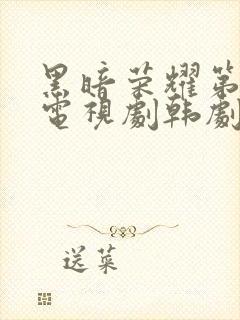 黑暗荣耀第
電視劇韩劇
送菜